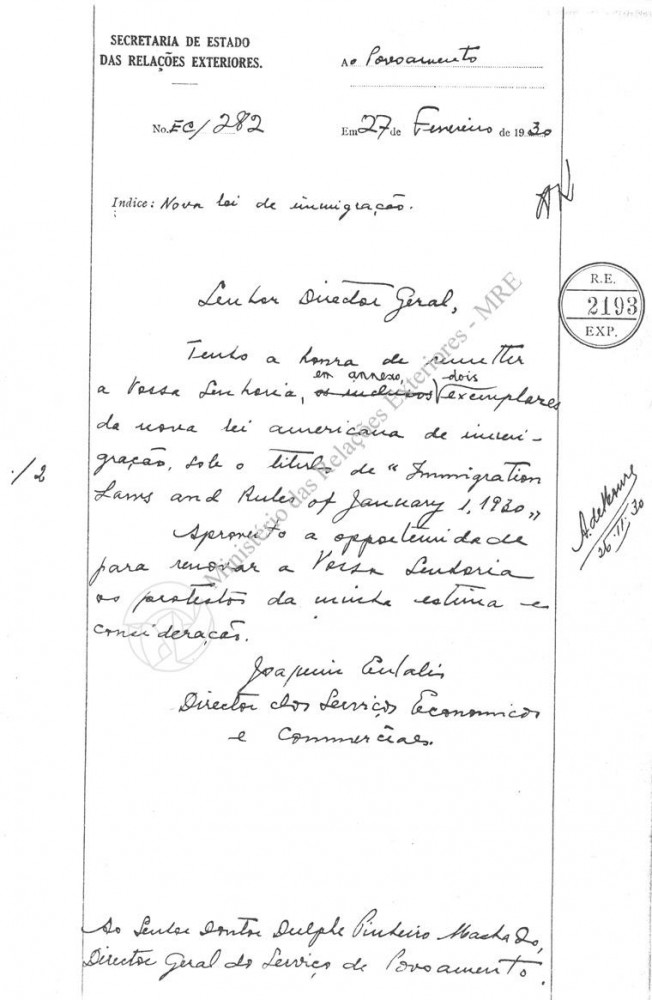 SECRETARIA DE ESTADO
DAS RELAÇÕES EXTERIORES.
Ao Povoamento
No. EC/282
Em 27 de Fevereiro de 1930
Indice: Nova lei de immigração.
R. E.
2193
EXP.
Senhor Director Geral,
Tenho a honra de remetter
em annexo, dois
a Vossa Senhoria, os inclusos exemplares
da nova lei americana de immi-
gração, sob o titulo de "Immigration
./2
Laws and Rules of January 1, 1930„
Aproveito a opportunidade
para renovar a Vossa Senhoria
os protestos da minha estima e
consideração.
26.II.30
Joaquim Eulalio
Director dos Serviços Economicos
e Commerciaes.
Ao Senhor Doutor Dulphe Pinheiro Machado,
Director Geral do Serviço de Povoamento.
Ministério das Relações Exteriores - MRE